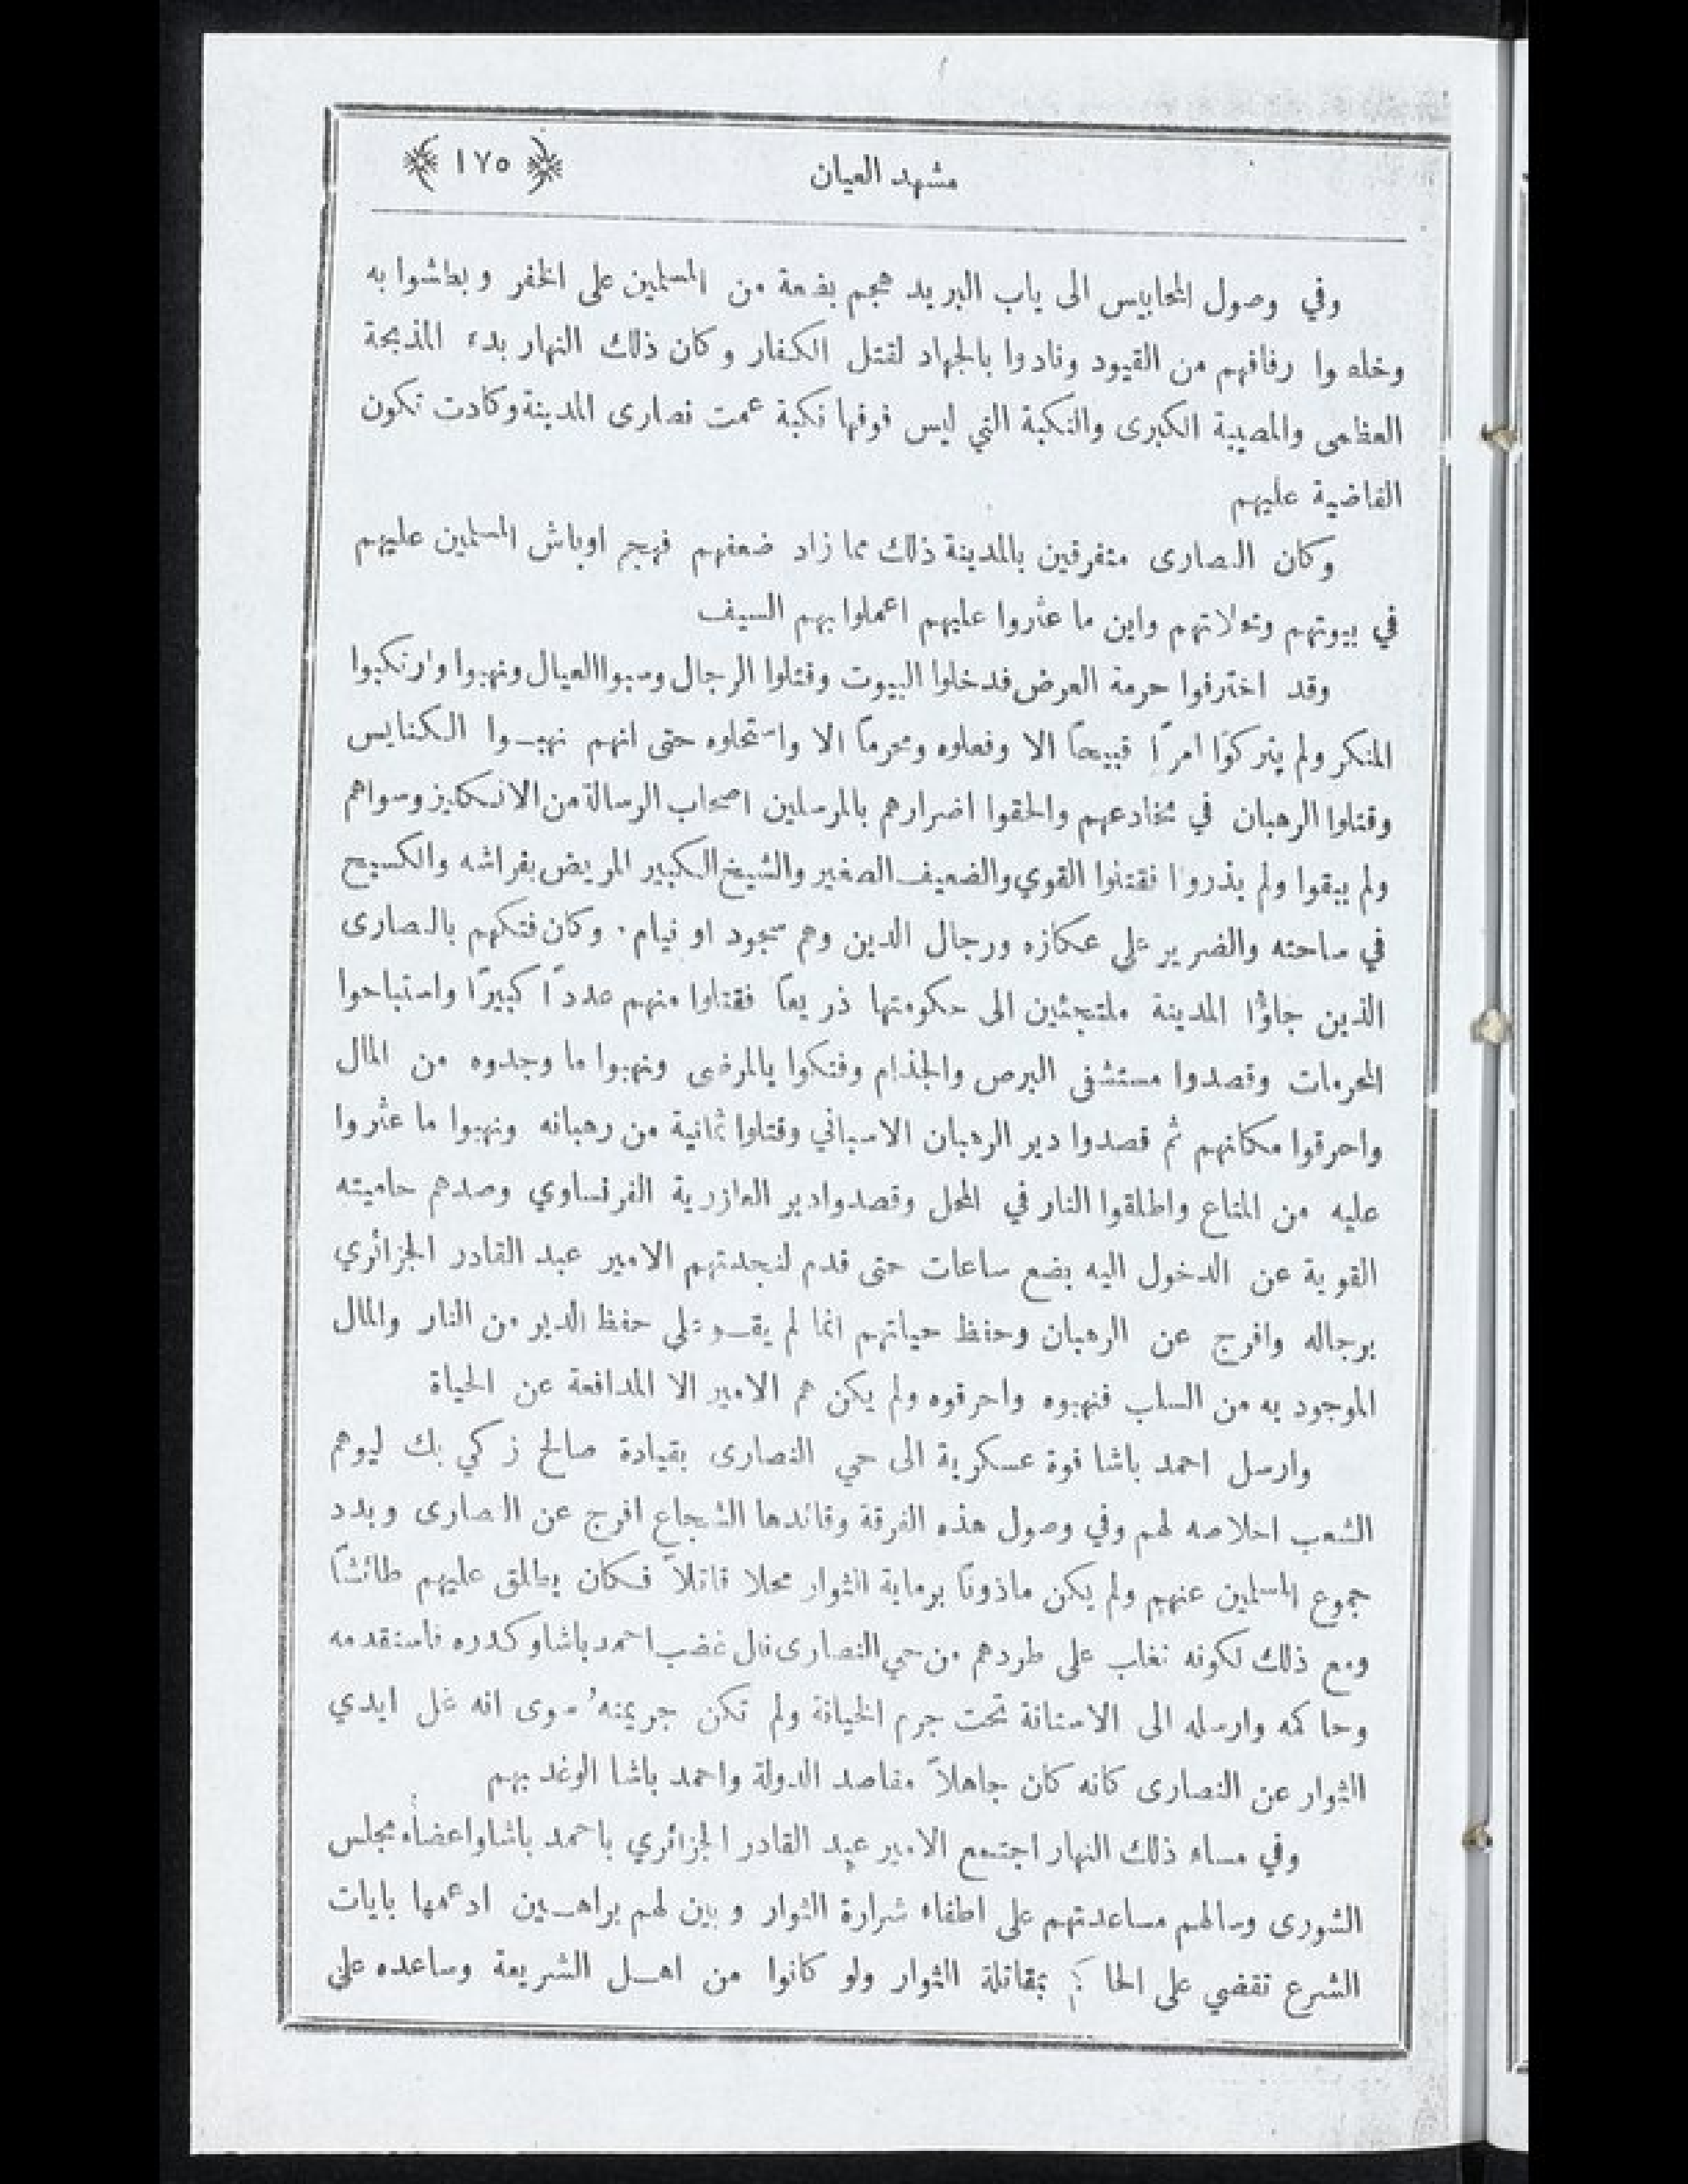 مشهد العيان ﴿ ١٧٥ ﴾
وفي وصول المحابيس الى باب البريد هجم بضعة من المسلمين على الخفر وبطشوا به
وخلصوا رفاقهم من القيود ونادوا بالجهاد لقتل الكفار وكان ذلك النهار بدء المذبحة
العظمى والمصيبة الكبرى والنكبة التي ليس فوقها نكبة عمت نصارى المدينة وكادت تكون
القاضية عليهم
وكان النصارى متفرقين بالمدينة ذلك مما زاد ضعفهم فهجم اوباش المسلمين عليهم
في بيوتهم ومحلاتهم واين ما عثروا عليهم اعملوا بهم السيف
وقد اخترقوا حرمة العرض فدخلوا البيوت وقتلوا الرجال وسبوا العيال ونهبوا وارتكبوا
المنكر ولم يتركوا امرًا قبيحًا الا وفعلوه ومحرمًا الا واستحلوه حتى انهم نهبوا الكنايس
وقتلوا الرهبان في مخادعهم والحقوا اضرارهم بالمرسلين اصحاب الرسالة من الانكليز وسواهم
ولم يبقوا ولم يذروا فقتلوا القوي والضعيف الصغير والشيخ الكبير المريض بفراشه والكسيح
في ساحته والضرير على عكازه ورجال الدين وهم سجود او نيام . وكان فتكهم بالنصارى
الذين جاؤا المدينة ملتجئين الى حكومتها ذريعًا فقتلوا منهم عددًا كبيرًا واستباحوا
المحرمات وقصدوا مستشفى البرص والجذام وفتكوا بالمرضى ونهبوا ما وجدوه من المال
واحرقوا مكانهم ثم قصدوا دير الرهبان الاسباني وقتلوا ثمانية من رهبانه ونهبوا ما عثروا
عليه من المتاع واطلقوا النار في المحل وقصدوا دير العازرية الفرنساوي وصدهم حاميته
القوية عن الدخول اليه بضع ساعات حتى قدم لنجدتهم الامير عبد القادر الجزائري
برجاله وافرج عن الرهبان وحفظ حياتهم انما لم يقو على حفظ الدير من النار والمال
الموجود به من السلب فنهبوه واحرقوه ولم يكن هم الامير الا المدافعة عن الحياة
وارسل احمد باشا قوة عسكرية الى حي النصارى بقيادة صالح زكي بك ليوهم
الشعب اخلاصه لهم وفي وصول هذه الفرقة وقائدها الشجاع افرج عن النصارى وبدد
جموع المسلمين عنهم ولم يكن ماذونًا برماية الثوار محلا قاتلاً فكان يطلق عليهم طائشًا
ومع ذلك لكونه تغلب على طردهم من حي النصارى نال غضب احمد باشا وكدره فاستقدمه
وحاكمه وارسله الى الاستانة تحت جرم الخيانة ولم تكن جريمته سوى انه غل ايدي
الثوار عن النصارى كانه كان جاهلاً مقاصد الدولة واحمد باشا الوغد بهم
وفي مساء ذلك النهار اجتمع الامير عبد القادر الجزائري باحمد باشا واعضاء مجلس
الشورى وسالهم مساعدتهم على اطفاء شرارة الثوار وبين لهم براهين ادعمها بايات
الشرع تقضي على الحاكم بمقاتلة الثوار ولو كانوا من اهل الشريعة وساعده على